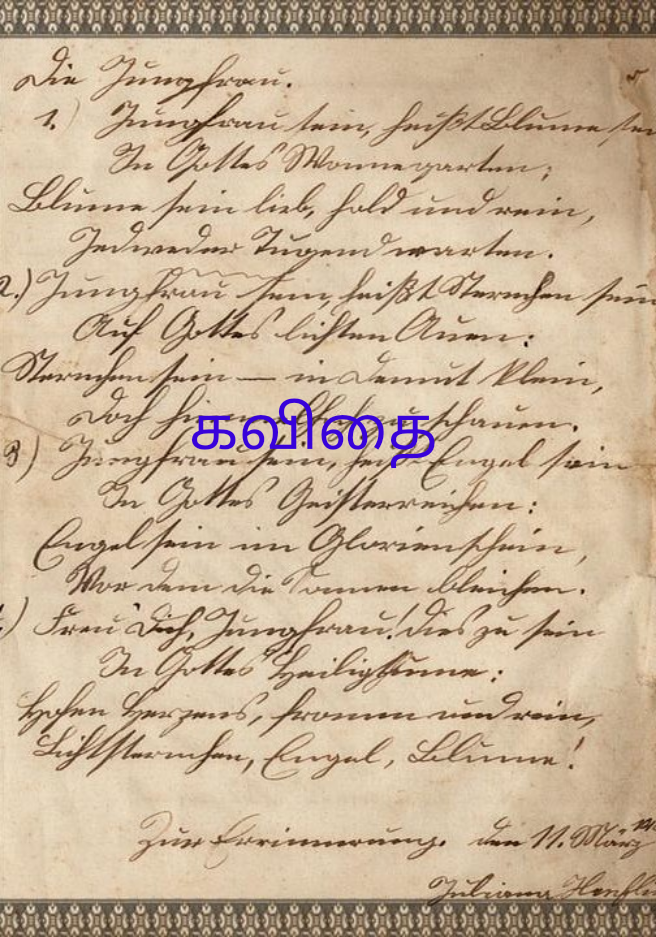 Die Jungfrau.
1.) Jungfrau sein, heißt Blume sein
In Gottes Wonnegarten;
Blume sein lieb, hold und rein,
Jedweder Tugend warten.
2.) Jungfrau sein, heißt Sternchen sein
Auf Gottes lichten Auen:
Sternchen sein — in Demut klein,
Doch schauen.
கவிதை
3) Jungfrau sein, heißt Engel sein
In Gottes Geisterreichen:
Engel sein im Glorienschein,
Vor dem die Sonnen bleichen.
.) Freu' Dich, Jungfrau! dies zu sein
In Gottes Heiligthume:
Hohen Herzens, fromm und rein,
Lichtsternchen, Engel, Blume!
Zur Erinnerung. den 11. März
Juliana